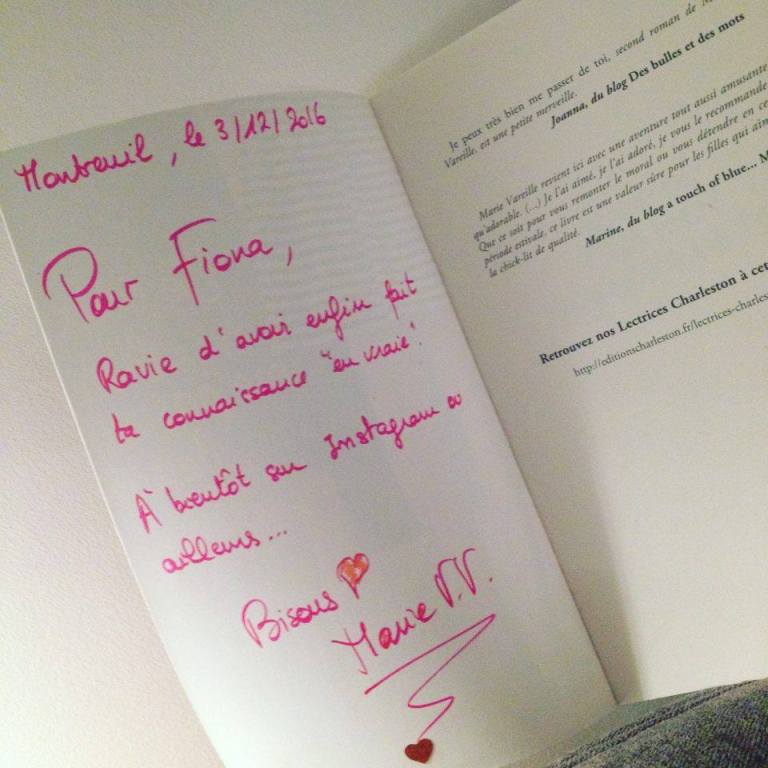 Montreuil, le 3/12/2016
Pour Fiona,
Ravie d'avoir enfin fait
ta connaissance "en vraie".
À bientôt sur Instagram ou
ailleurs...
Bisous
Marie V.V.
Je peux très bien me passer de toi, second roman de
Vareille, est une petite merveille.
Joanna, du blog Des bulles et des mots
Marie Vareille revient ici avec une aventure tout aussi amusante
qu'adorable. (...) Je l'ai aimé, je l'ai adoré, je vous le recommande
Que ce soit pour vous remonter le moral ou vous détendre en
période estivale, ce livre est une valeur sûre pour les filles qui
la chick-lit de qualité.
Marine, du blog a touch of blue...
Retrouvez nos Lectrices Charleston à
http://editionscharleston.fr/lectrices-charles